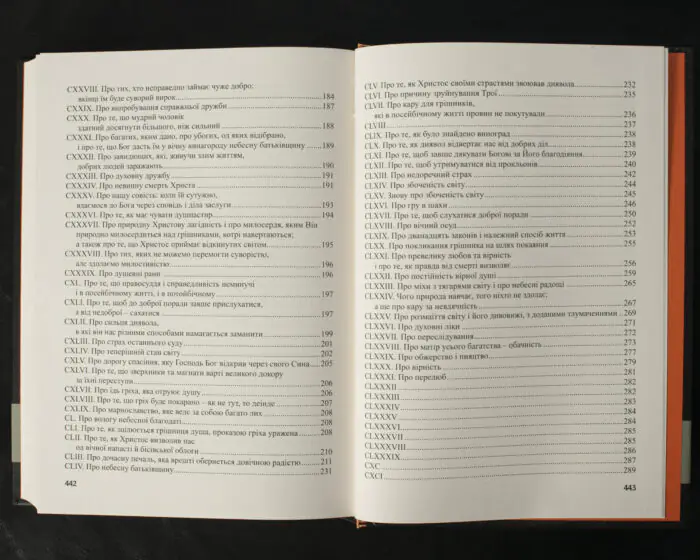 CXXVIII. Про тих, хто неправедно займає чуже добро;
якінц їм буде суворий вирок 184
CXXIX. Про випробування справжньої дружби 187
CXXX. Про те, що мудрий чоловік
здатний досягнути більшого, ніж сильний 188
CXXXI. Про багатих, яким дано, про убогих, од яких відібрано,
і про те, що Бог дасть їм у вічну винагороду небесну батьківщину 189
CXXXII. Про завидющих, які, живучи злим життям,
добрих людей заражають 190
CXXXIII. Про духовну дружбу 191
CXXXIV. Про невинну смерть Христа 191
CXXXV. Про нашу совість: коли їй сутужно,
вдаємося до Бога через сповідь і діла заслуги 193
CXXXVI. Про те, як має чувати душпастир 194
CXXXVII. Про природну Христову лагідність і про милосердя, яким Він
природно милосердиться над грішниками, котрі навертаються;
а також про те, що Христос приймає відкинутих світом 195
CXXXVIII. Про тих, яких не можемо перемогти суворістю,
але здолаємо милостивістю 196
CXXXIX. Про душевні рани 196
CXL. Про те, що правосуддя і справедливість неминучі
і в посейбічному житті, і в потойбічному 197
CXLI. Про те, щоб до доброї поради завше прислухатися,
а від недоброї – сахатися 197
CXLII. Про сильця диявола,
в які він нас різними способами намагається заманити 199
CXLIII. Про страх останнього суду 201
CXLIV. Про теперішній стан світу 202
CXLV. Про дорогу спасіння, яку Господь Бог відкрив через свого Сина 205
CXLVI. Про те, що зверхники та магнати варті великого докору
за їхні переступи 206
CXLVII. Про їдь гріха, яка отруює душу 206
CXLVIII. Про те, що гріх буде покарано – як не тут, то деінде 207
CXLIX. Про марнославство, яке веде за собою багато лих 208
CL. Про вологу небесної благодаті 208
CLI. Про те, як зцілюється грішниця душа, проказою гріха уражена 208
CLII. Про те, як Христос визволив нас
од вічної напасті й бісівської облоги 210
CLIII. Про дочасну печаль, яка врешті обернеться довічною радістю 211
CLIV. Про небесну батьківщину 231
442
CLV Про те, як Христос своїми страстями звоював диявола 232
CLVI. Про причину зруйнування Трої 235
CLVII. Про кару для грішників,
які в посейбічному житті провин не покутували 236
CLVIII 237
CLIX. Про те, як було знайдено виноград 238
CLX. Про те, як диявол відвертає нас від добрих діл 238
CLXI. Про те, щоб завше дякувати Богові за Його благодіяння 239
CLXII. Про те, щоб утримуватися від прокльонів 240
CLXIII. Про недоречний страх 242
CLXIV. Про збоченість світу 244
CLXV. Знову про збоченість світу 245
CLXVI. Про гру в шахи 246
CLXVII. Про те, щоб слухатися доброї ради 250
CLXVIII. Про вічний осуд 252
CLXIX. Про дванадцять законів і належний спосіб життя 253
CLXX. Про покликання грішника на шлях покаяння 255
CLXXI. Про превелику любов та вірність
і про те, як правда від смерті визволяє 256
CLXXII. Про постійність вірної душі 259
CLXXIII. Про міхи з тягарями світу і про небесні радощі 265
CLXXIV. Чого природа навчає, того ніхто не здолає;
а ще про кару за невдячність 267
CLXXV. Про розмаїття світу і його дивовижі, з доданими тлумаченнями 269
CLXXVI. Про духовні ліки 271
CLXXVII. Про переслідування 272
CLXXVIII. Про матір усього багатства – обачність 277
CLXXIX. Про обжерство і пияцтво 279
CLXXX. Про вірність 281
CLXXXI. Про перелюб 282
CLXXXII 282
CLXXXIII 283
CLXXXIV 284
CLXXXV 284
CLXXXVI 285
CLXXXVII 285
CLXXXVIII 286
CLXXXIX 287
CXC 287
CXCI 289
443